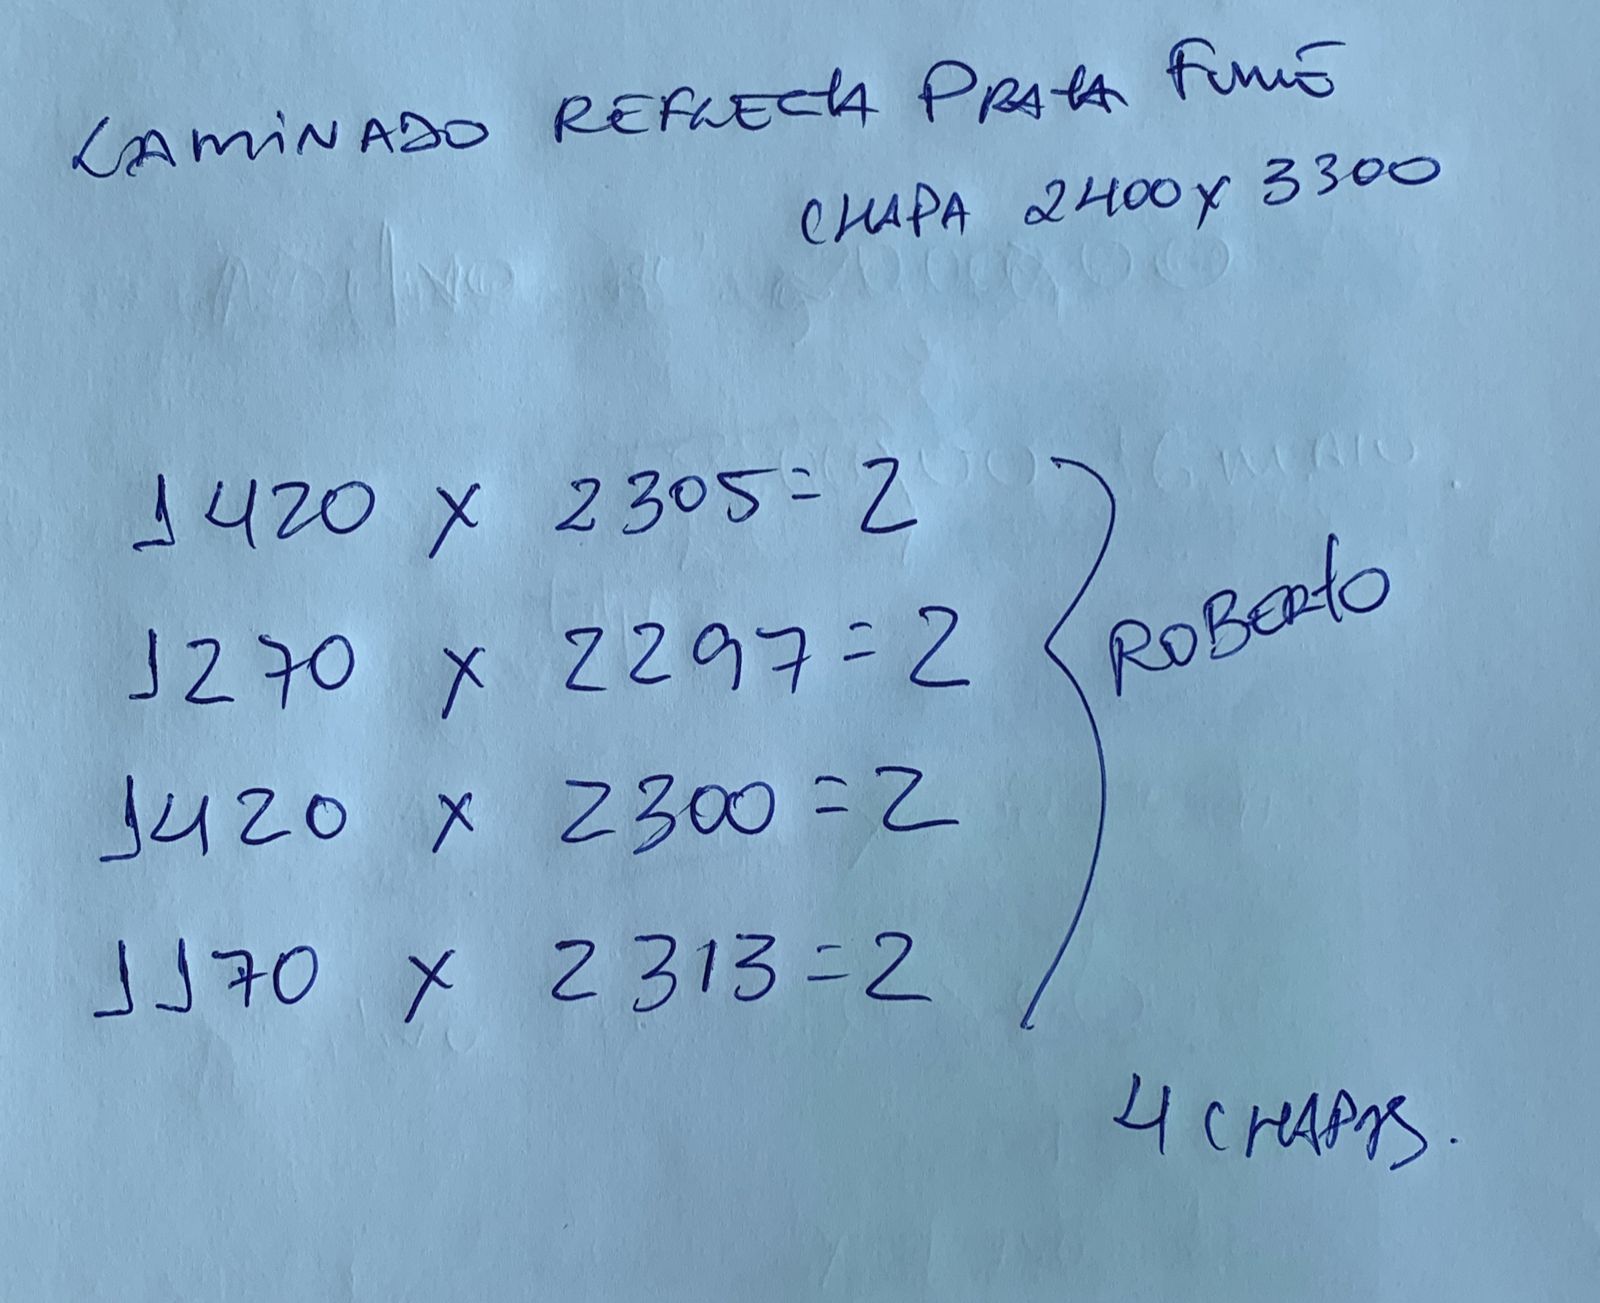 LAMINADO REFLECTA PRATA FUMÊ
CHAPA 2400 x 3300
1420 x 2305 = 2
1270 x 2297 = 2
ROBERTO
1420 x 2300 = 2
1170 x 2313 = 2
4 CHAPAS.